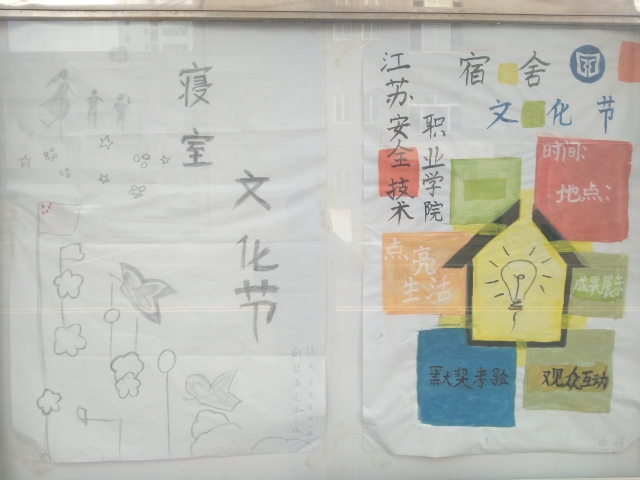 寝室
文化节
江苏安全技术
职业学院
宿舍
文化节
时间:
地点:
点亮
生活
成果展示
大奖考验
观众互动